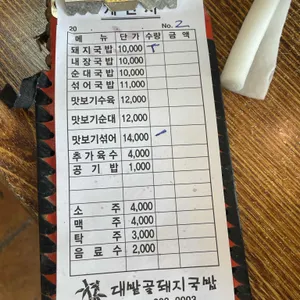 계 산 서
20 . . No. 2
메 뉴 단가 수량 금 액
돼지국밥 10,000
내장국밥 10,000
순대국밥 10,000
섞어국밥 11,000
맛보기수육 12,000
맛보기순대 12,000
맛보기섞어 14,000
추가육수 4,000
공기밥 1,000
소 주 4,000
맥 주 4,000
탁 주 3,000
음료수 2,000
대밭골돼지국밥